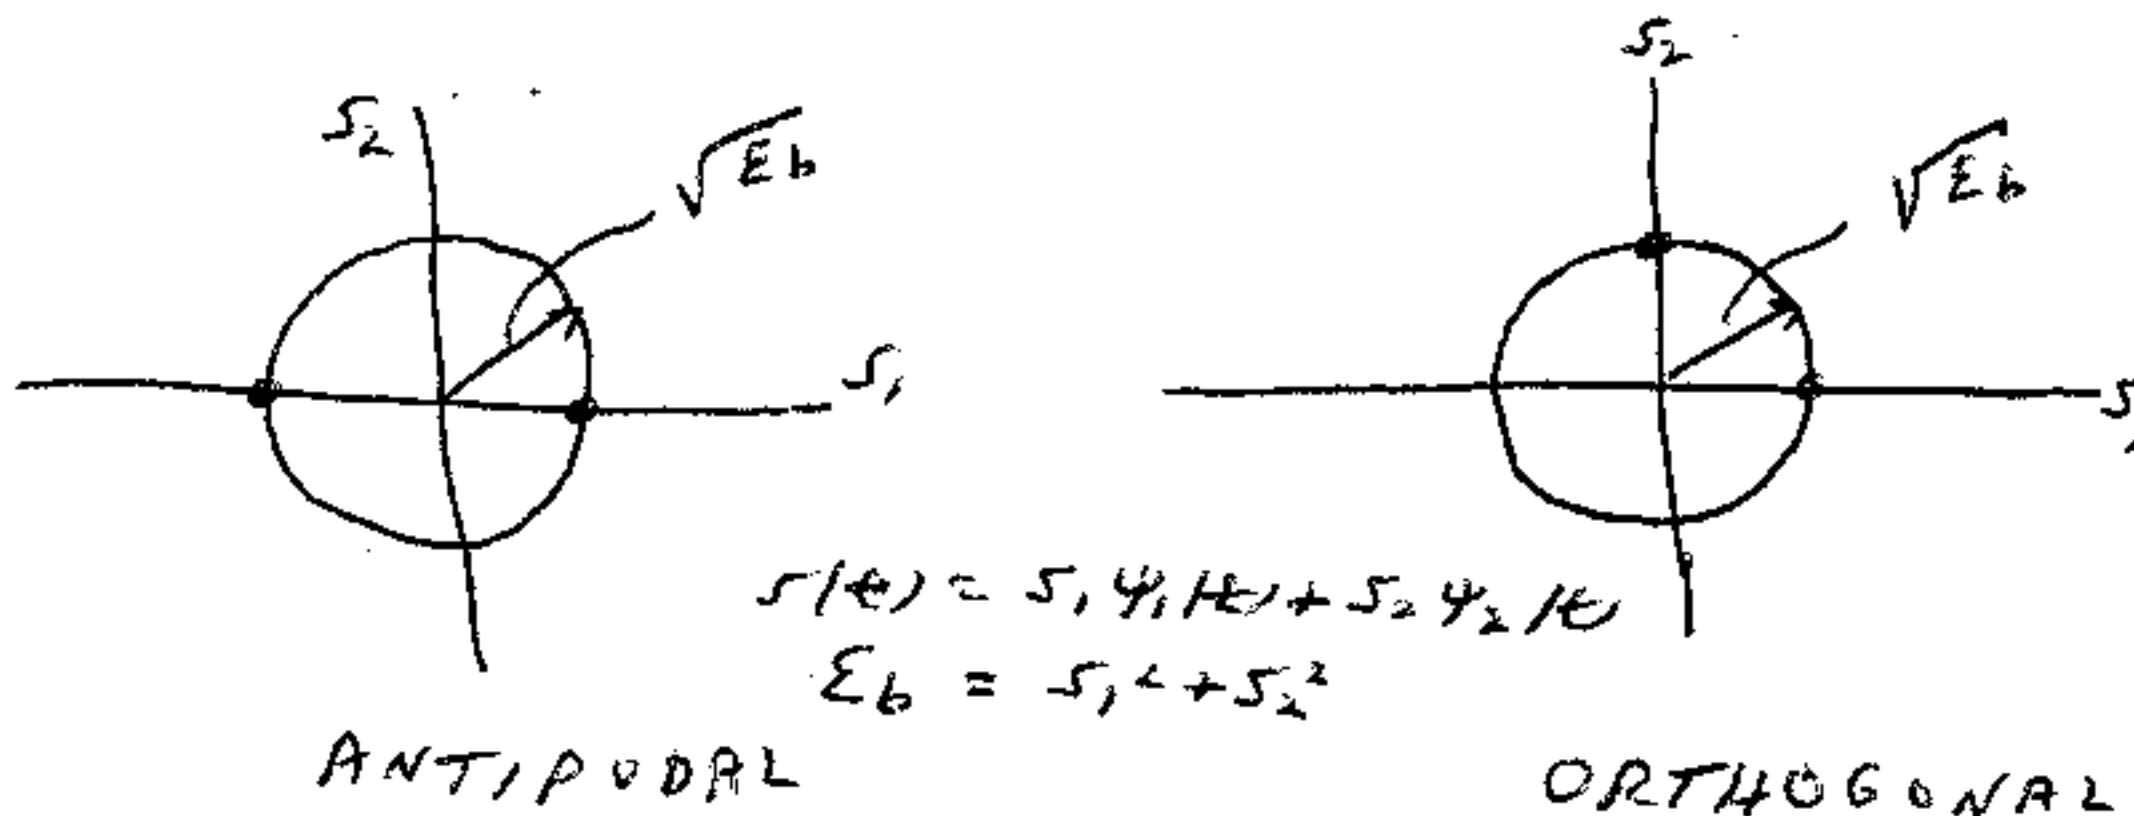 S₂
√Eb
S₁
S₂
√Eb
S₁
s(t) = S₁ ψ₁(t) + S₂ ψ₂(t)
Eb = S₁² + S₂²
ANTIPODAL
ORTHOGONAL